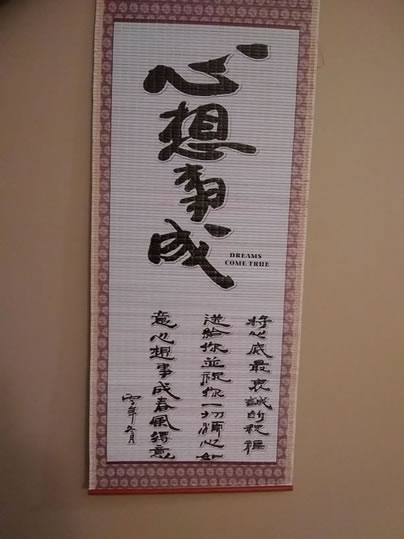 心想事成
DREAMS
COME TRUE
將心底最衷誠的祝福
送給你並祝你一切順心如
意心想事成春風得意